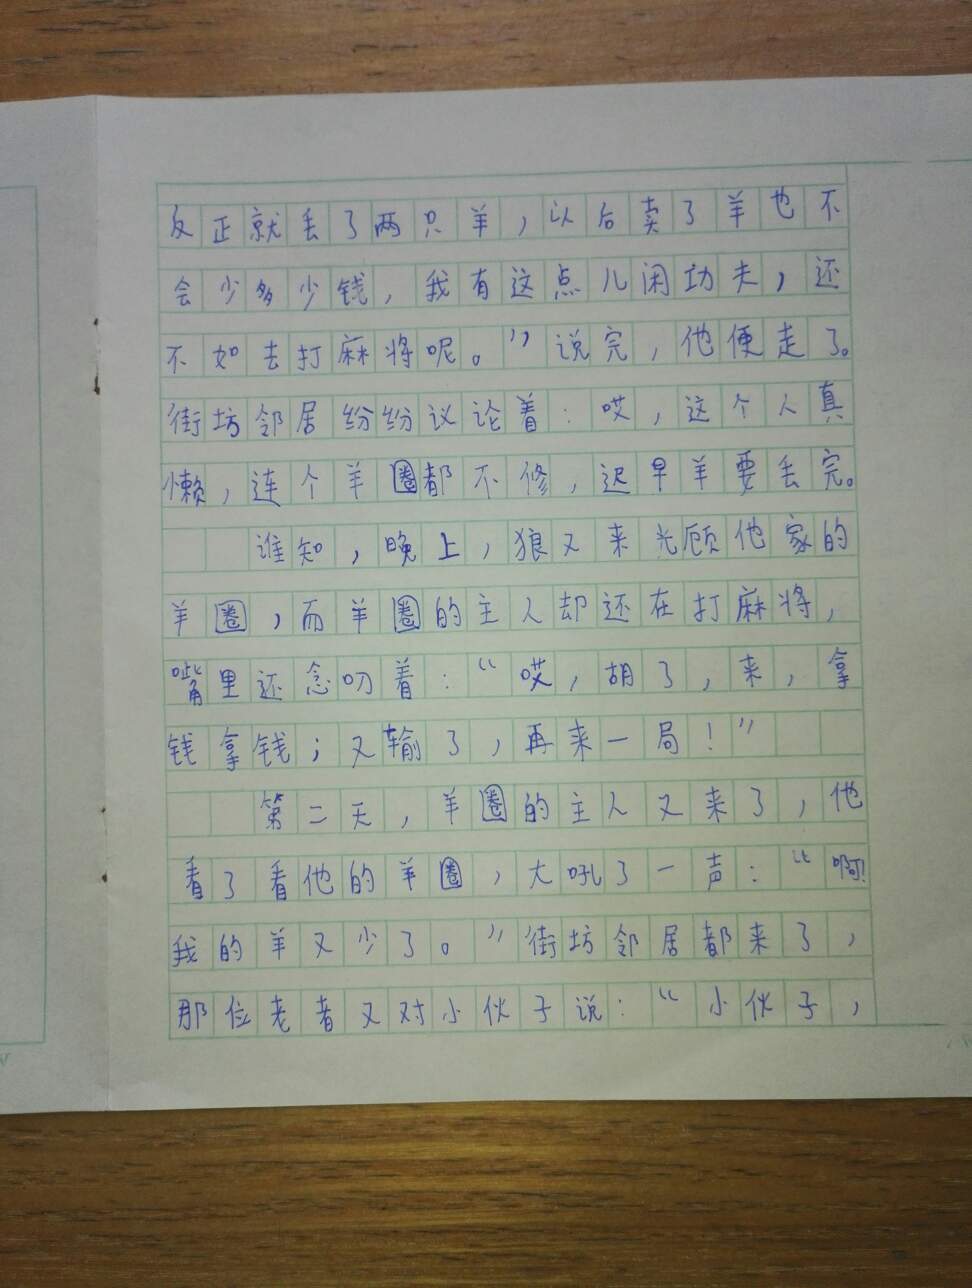 反正就丢了两只羊，以后卖了羊也不
会少多少钱，我有这点儿闲功夫，还
不如去打麻将呢。”说完，他便走了。
街坊邻居纷纷议论着：哎，这个人真
懒，连个羊圈都不修，迟早羊要丢完。
谁知，晚上，狼又来光顾他家的
羊圈，而羊圈的主人却还在打麻将，
嘴里还念叨着：“哎，胡了，来，拿
钱拿钱；又输了，再来一局！”
第二天，羊圈的主人又来了，他
看了看他的羊圈，大吼了一声：“啊！
我的羊又少了。”街坊邻居都来了，
那位老者又对小伙子说：“小伙子，